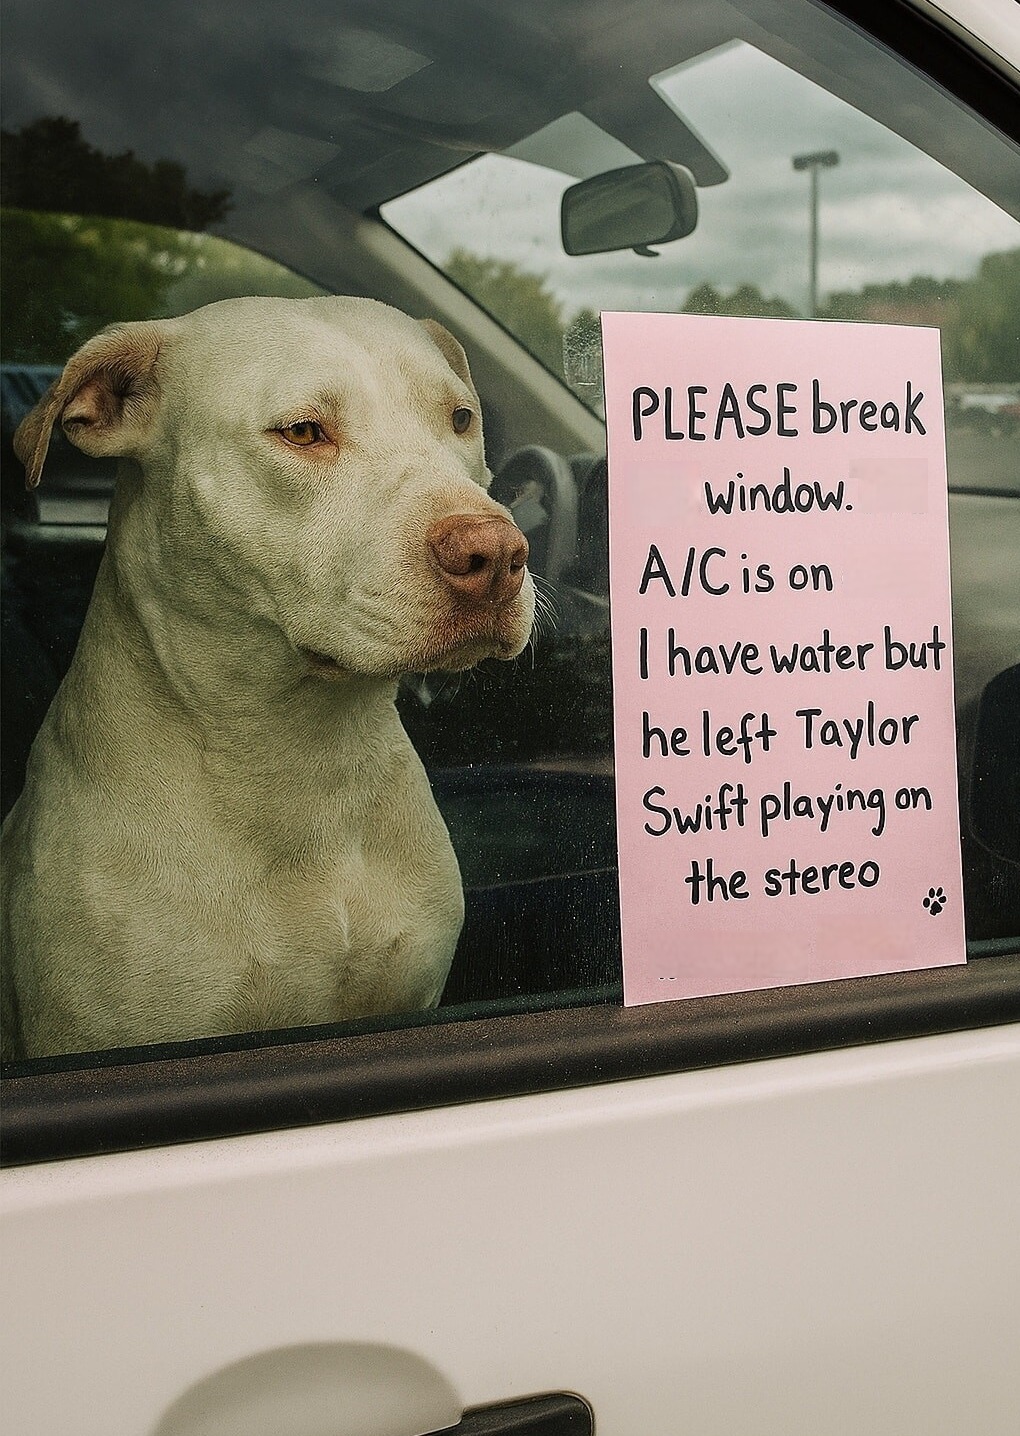 PLEASE break
window.
A/C is on
I have water but
he left Taylor
Swift playing on
the stereo